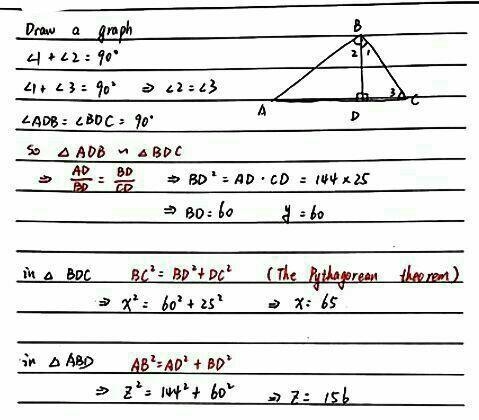 Draw a graph
∠1 + ∠2 = 90°
∠1 + ∠3 = 90° ⇒ ∠2 = ∠3
∠ADB = ∠BDC = 90°
So △ ADB ∽ △ BDC
⇒ AD/BD = BD/CD ⇒ BD² = AD · CD = 144 × 25
⇒ BD = 60 y = 60
in △ BDC BC² = BD² + DC² (The Pythagorean theorem)
⇒ x² = 60² + 25² ⇒ x = 65
in △ ABD AB² = AD² + BD²
⇒ z² = 144² + 60² ⇒ z = 156
B
2 1
A D 3 C